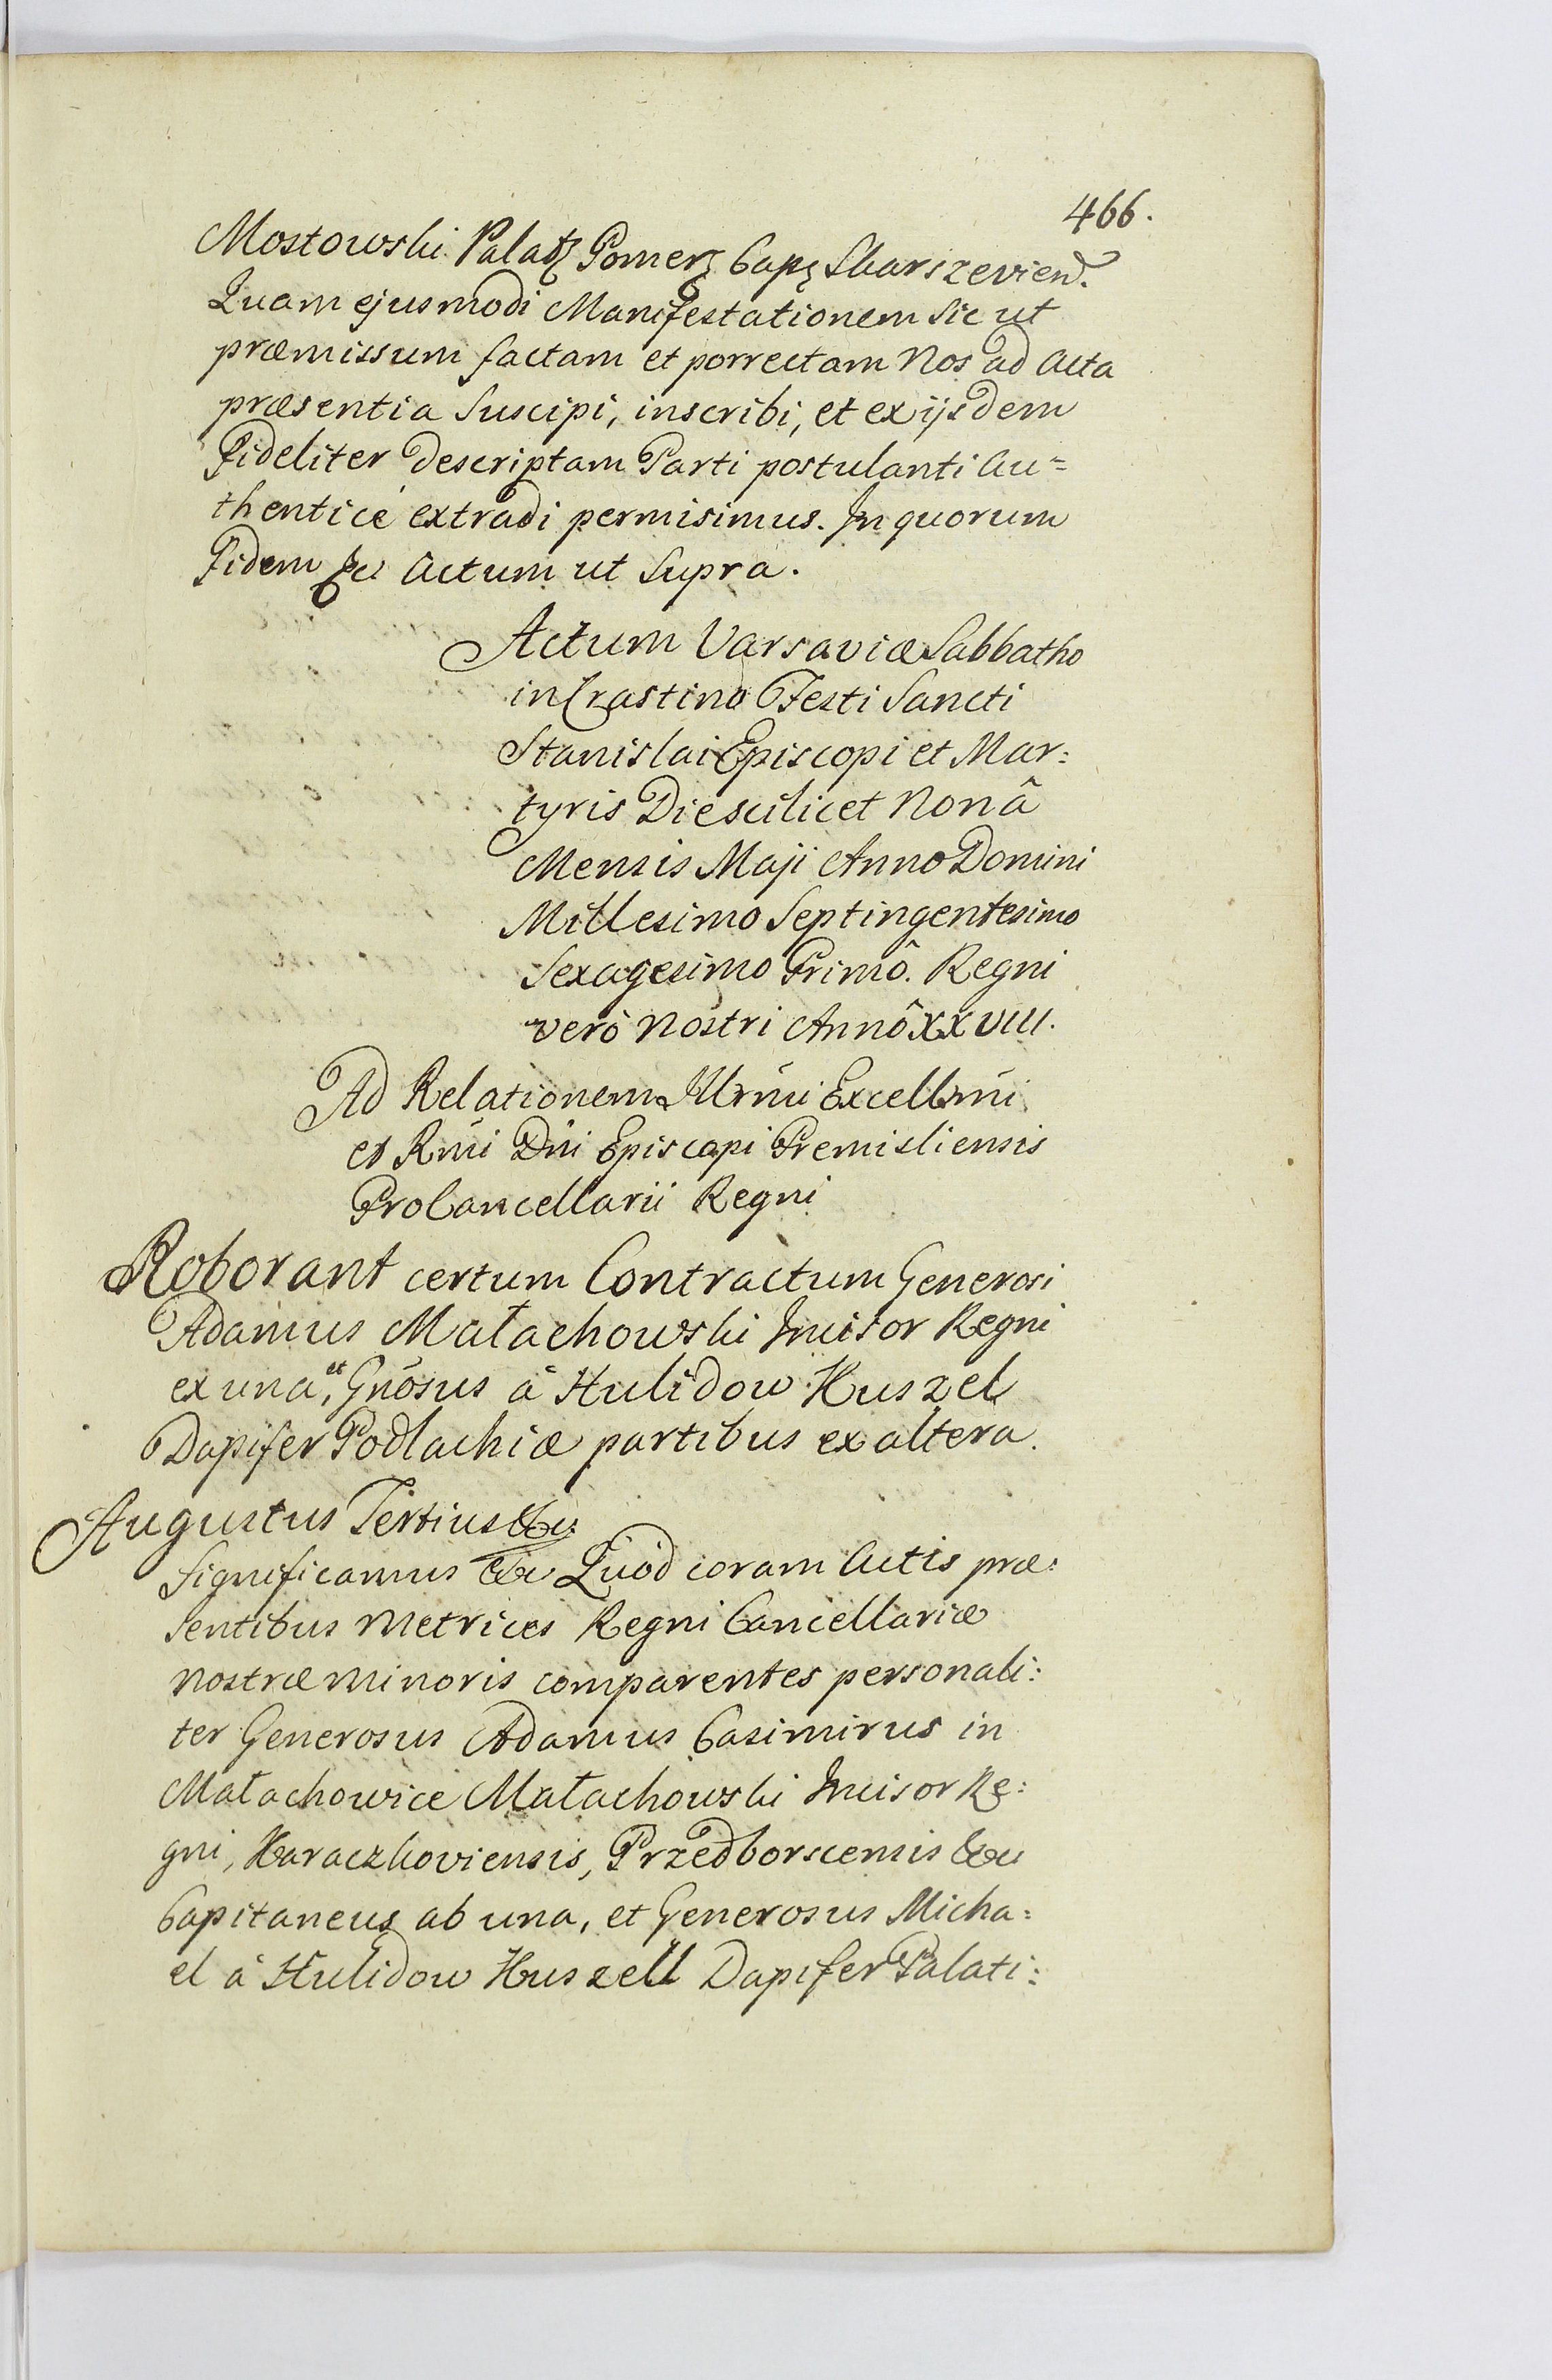 466.
Mostowski Palat Pomer Cap Skarszevien.
Quam ejusmodi Manifestationem Sic ut
præmissum factam et porrectam Nos ad Acta
præsentia Suscipi, inscribi, et ex ijsdem
Fideliter descriptam Parti postulanti Au=
thenticè extradi permisimus. In quorum
Fidem &c Actum ut Supra.
Actum Varsaviæ Sabbatho
in Crastino Festi Sancti
Stanislai Episcopi et Mar:
tyris Die scilicet Nonâ
Mensis Maji Anno Domini
Millesimo Septingentesimo
Sexagesimo Primô. Regni
verò Nostri Annô XXVIII.
Ad Relationem Illrmi Excellmi
et Rmi Dni Episcopi Premisliensis
ProCancellarii Regni
Roborant certum Contractum Generosi
Adamus Małachowski Incisor Regni
ex una, et Gnosus à Hulidow Huszel
Dapifer Podlachiæ partibus ex altera.
Augustus Tertius &c:
Significamus &c Quòd coram Actis præ:
sentibus Metrices Regni Cancellariæ
Nostræ Minoris comparentes personali:
ter Generosus Adamus Casimirus in
Małachowice Małachowski Incisor Re:
gni, Haraczkoviensis, Przedborscensis &c
Capitaneus ab una, et Generosus Micha:
el à Hulidow Huszell Dapifer Palati: